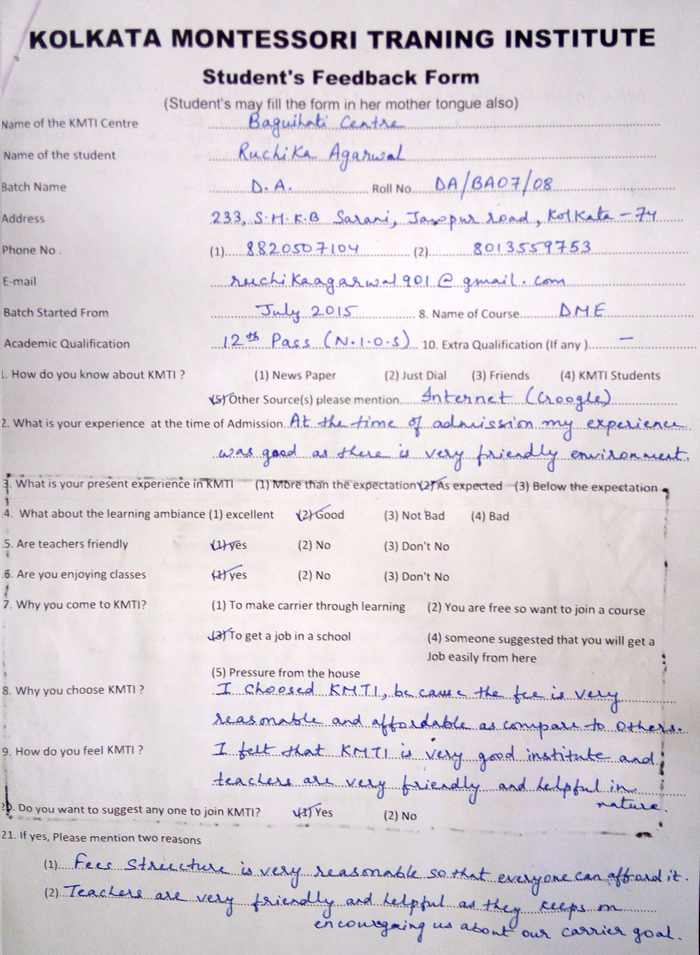 KOLKATA MONTESSORI TRANING INSTITUTE
Student's Feedback Form
(Student's may fill the form in her mother tongue also)
Name of the KMTI Centre Baguihati Centre
Name of the student Ruchika Agarwal
Batch Name D.A. Roll No. DA/BA07/08
Address 233, S.H.K.B Sarani, Jasspur road, Kolkata - 74
Phone No. (1) 8820507104 (2) 8013559753
E-mail ruchikaagarwal901@gmail.com
Batch Started From July 2015 8. Name of Course DME
Academic Qualification 12th Pass (N.I.O.S) 10. Extra Qualification (If any) —
1. How do you know about KMTI ? (1) News Paper (2) Just Dial (3) Friends (4) KMTI Students
(5) Other Source(s) please mention Internet (Google)
2. What is your experience at the time of Admission. At the time of admission my experience
was good as there is very friendly environment.
3. What is your present experience in KMTI (1) More than the expectation (2) As expected (3) Below the expectation
4. What about the learning ambiance (1) excellent (2) Good (3) Not Bad (4) Bad
5. Are teachers friendly (1) yes (2) No (3) Don't No
6. Are you enjoying classes (1) yes (2) No (3) Don't No
7. Why you come to KMTI? (1) To make carrier through learning (2) You are free so want to join a course
(3) To get a job in a school (4) someone suggested that you will get a
Job easily from here
(5) Pressure from the house
8. Why you choose KMTI ? I choosed KMTI, because the fee is very
reasonable and affordable as compare to others.
9. How do you feel KMTI ? I felt that KMTI is very good institute and
teachers are very friendly and helpful in
nature.
20. Do you want to suggest any one to join KMTI? (1) Yes (2) No
21. If yes, Please mention two reasons
(1) Fees Structure is very reasonable so that everyone can afford it.
(2) Teachers are very friendly and helpful as they keeps on
encouragaing us about our carrier goal.